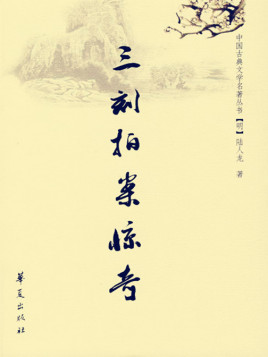 中国古典文学名著丛书【明】陆人龙 著
三刻拍案惊奇
华夏出版社